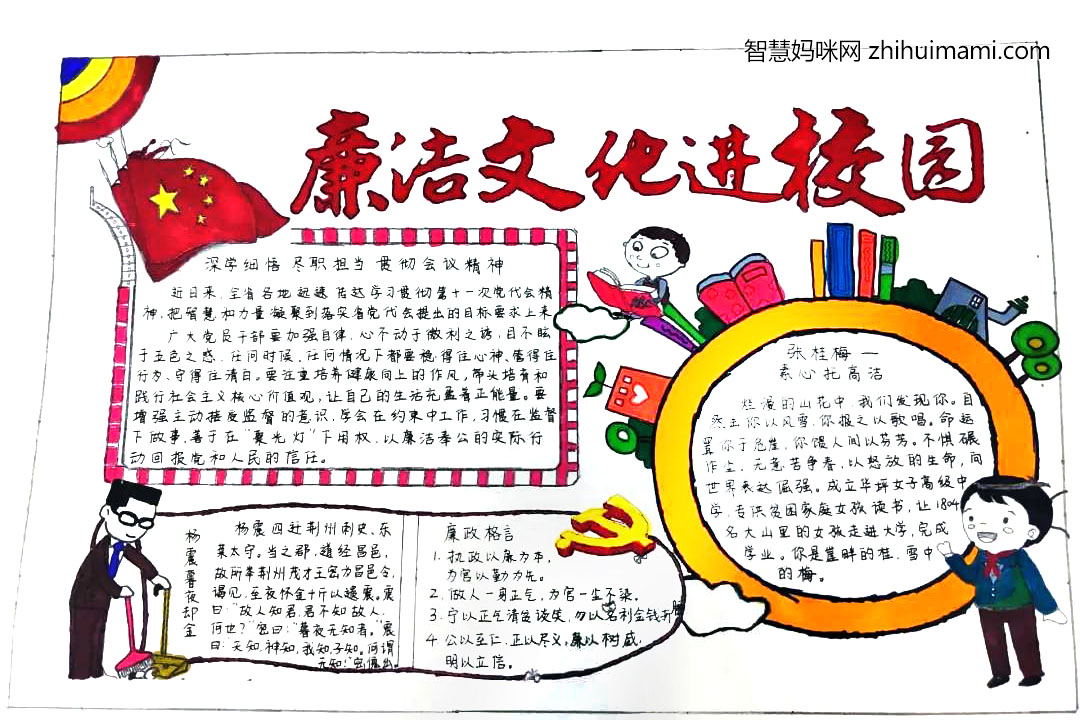 智慧妈咪网 zhihuimami.com
廉洁文化进校园
深学细悟 尽职担当 贯彻会议精神
近日来,全省各地迅速传达学习贯彻第十一次党代会精
神,把智慧和力量凝聚到落实省党代会提出的目标要求上来
广大党员干部要加强自律,心不动于微利之诱,目不眩
于五色之惑,任何时候、任何情况下都要稳得住心神、管得住
行为、守得住清白。要注重培养健康向上的作风,带头培育和
践行社会主义核心价值观,让自己的生活充盈着正能量。要
增强主动接受监督的意识,学会在约束中工作,习惯在监督
下做事,善于在“聚光灯”下用权,以廉洁奉公的实际行
动回报党和人民的信任。
张桂梅一
素心托高洁
烂漫的山花中 我们发现你。自
然击你以风雪,你报之以歌唱。命运
置你于危崖,你馈人间以芬芳。不惧碾
作尘,无意苦争春,以怒放的生命,向
世界表达倔强。成立华坪女子高级中
学,专供贫困家庭女孩读书,让1804
名大山里的女孩走进大学,完成
学业。你是崖畔的桂,雪中
的梅。
杨震暮夜却金
杨震四迁荆州刺史、东
莱太守。当之郡,道经昌邑,
故所举荆州茂才王密为昌邑令,
谒见,至夜怀金十斤以遗震。震
曰:“故人知君,君不知故人,
何也?”密曰:“暮夜无知者。”震
曰:“天知,神知,我知,子知。何谓
无知!”密愧出
廉政格言
1. 执政以廉为本,
为官以勤为先。
2. 做人一身正气,为官一尘不染。
3. 宁以正气清贫谈笑,勿以名利金钱开
4 公以至仁,正以尽义,廉以树威,
明以立信。
ABC